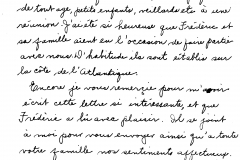 de tout age, petits enfants, vieillards etc à une
réunion. J'ai été si heureuse que Frédéric et
sa famille aient eu l'occasion de faire partie
avec nous. D'habitude ils sont établis sur
la côte de l'Atlantique.
Encore je vous remercie pour m'avoir
écrit cette lettre si intéressante, et que
Frédéric a lu avec plaisir. Il se joint
à moi pour vous envoyer ainsi qu'a toute
votre famille nos sentiments affectueux.